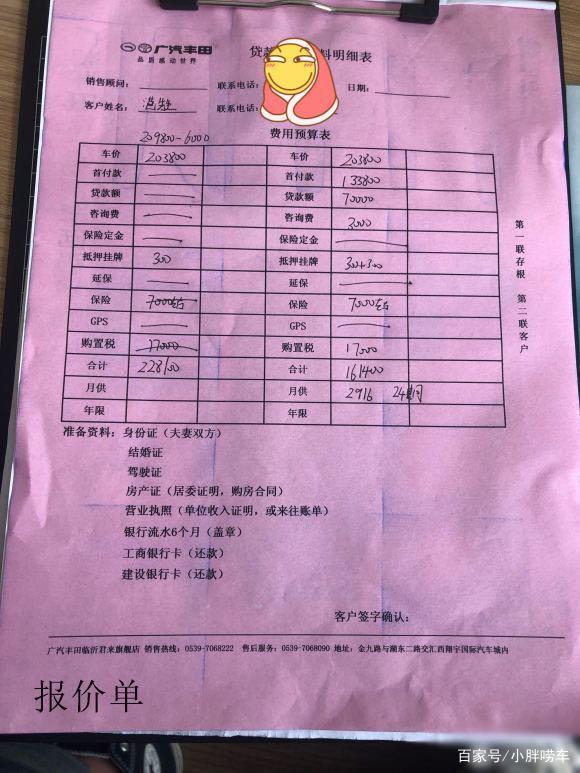 广汽丰田 贷款 料明细表
品质感动世界
销售顾问: 联系电话: 日期:
客户姓名: 联系电话:
209800-6000 费用预算表
车价 203800 车价 203800
首付款 首付款 133800
贷款额 贷款额 70000
咨询费 咨询费 3000
保险定金 保险定金
抵押挂牌 300 抵押挂牌 300+300
延保 延保
保险 7000左右 保险 7000左右
GPS GPS
购置税 17000 购置税 17000
合计 228100 合计 161400
月供 月供 2916 24期
年限 年限
第一联存根 第二联客户
准备资料: 身份证(夫妻双方)
结婚证
驾驶证
房产证(居委证明,购房合同)
营业执照(单位收入证明,或来往账单)
银行流水6个月(盖章)
工商银行卡(还款)
建设银行卡(还款)
客户签字确认:
广汽丰田临沂君来旗舰店 销售热线:0539-7068222 售后服务:0539-7068090 地址:金九路与湖东二路交汇西翔宇国际汽车城内
报价单
百家号/小胖唠车